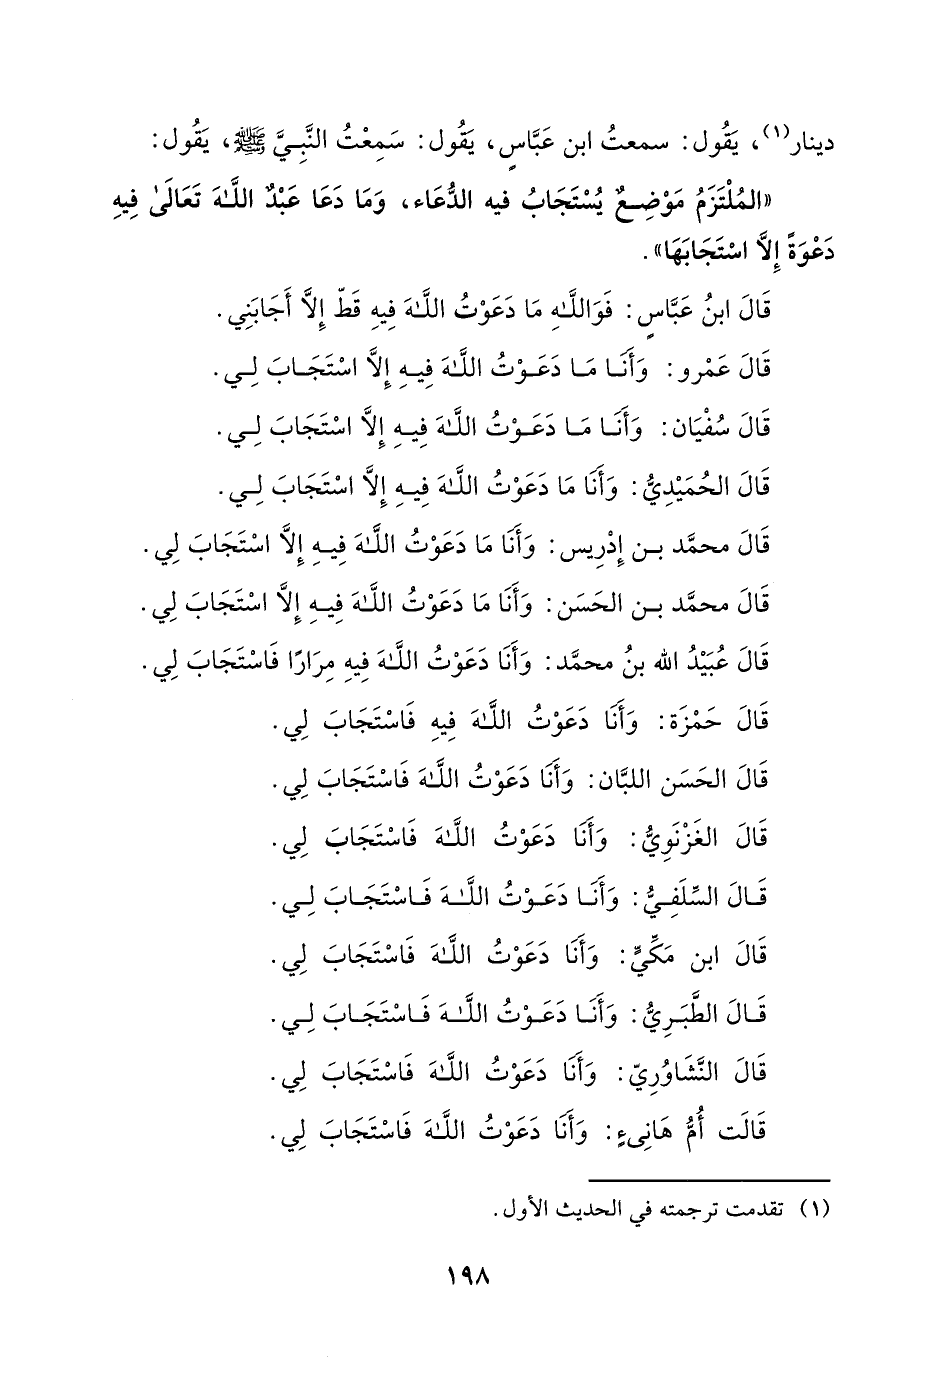 دينار(١)، يَقُول: سمعتُ ابن عَبَّاسٍ، يَقُول: سَمِعْتُ النَّبِيَّ ﷺ، يَقُول:
«المُلْتَزَمُ مَوْضِعٌ يُسْتَجَابُ فيه الدُّعَاء، وَمَا دَعَا عَبْدٌ اللَّهَ تَعَالَىٰ فِيهِ
دَعْوَةً إِلَّا اسْتَجَابَهَا».
قَالَ ابنُ عَبَّاسٍ: فَوَاللَّهِ مَا دَعَوْتُ اللَّهَ فِيهِ قَطّ إِلَّا أَجَابَنِي.
قَالَ عَمْرو: وَأَنَا مَا دَعَوْتُ اللَّهَ فِيهِ إِلَّا اسْتَجَابَ لِي.
قَالَ سُفْيَان: وَأَنَا مَا دَعَوْتُ اللَّهَ فِيهِ إِلَّا اسْتَجَابَ لِي.
قَالَ الحُمَيْدِيُّ: وَأَنَا مَا دَعَوْتُ اللَّهَ فِيهِ إِلَّا اسْتَجَابَ لِي.
قَالَ محمَّد بن إِدْرِيس: وَأَنَا مَا دَعَوْتُ اللَّهَ فِيهِ إِلَّا اسْتَجَابَ لِي.
قَالَ محمَّد بن الحَسَن: وَأَنَا مَا دَعَوْتُ اللَّهَ فِيهِ إِلَّا اسْتَجَابَ لِي.
قَالَ عُبَيْدُ الله بنُ محمَّد: وَأَنَا دَعَوْتُ اللَّهَ فِيهِ مِرَارًا فَاسْتَجَابَ لِي.
قَالَ حَمْزَة: وَأَنَا دَعَوْتُ اللَّهَ فِيهِ فَاسْتَجَابَ لِي.
قَالَ الحَسَن اللبَّان: وَأَنَا دَعَوْتُ اللَّهَ فَاسْتَجَابَ لِي.
قَالَ الغَزْنَوِيُّ: وَأَنَا دَعَوْتُ اللَّهَ فَاسْتَجَابَ لِي.
قَالَ السِّلَفِيُّ: وَأَنَا دَعَوْتُ اللَّهَ فَاسْتَجَابَ لِي.
قَالَ ابن مَكِّيٍّ: وَأَنَا دَعَوْتُ اللَّهَ فَاسْتَجَابَ لِي.
قَالَ الطَّبَرِيُّ: وَأَنَا دَعَوْتُ اللَّهَ فَاسْتَجَابَ لِي.
قَالَ النَّشَاوُرِيّ: وَأَنَا دَعَوْتُ اللَّهَ فَاسْتَجَابَ لِي.
قَالَت أُمُّ هَانِىءٍ: وَأَنَا دَعَوْتُ اللَّهَ فَاسْتَجَابَ لِي.
(١) تقدمت ترجمته في الحديث الأول.
١٩٨